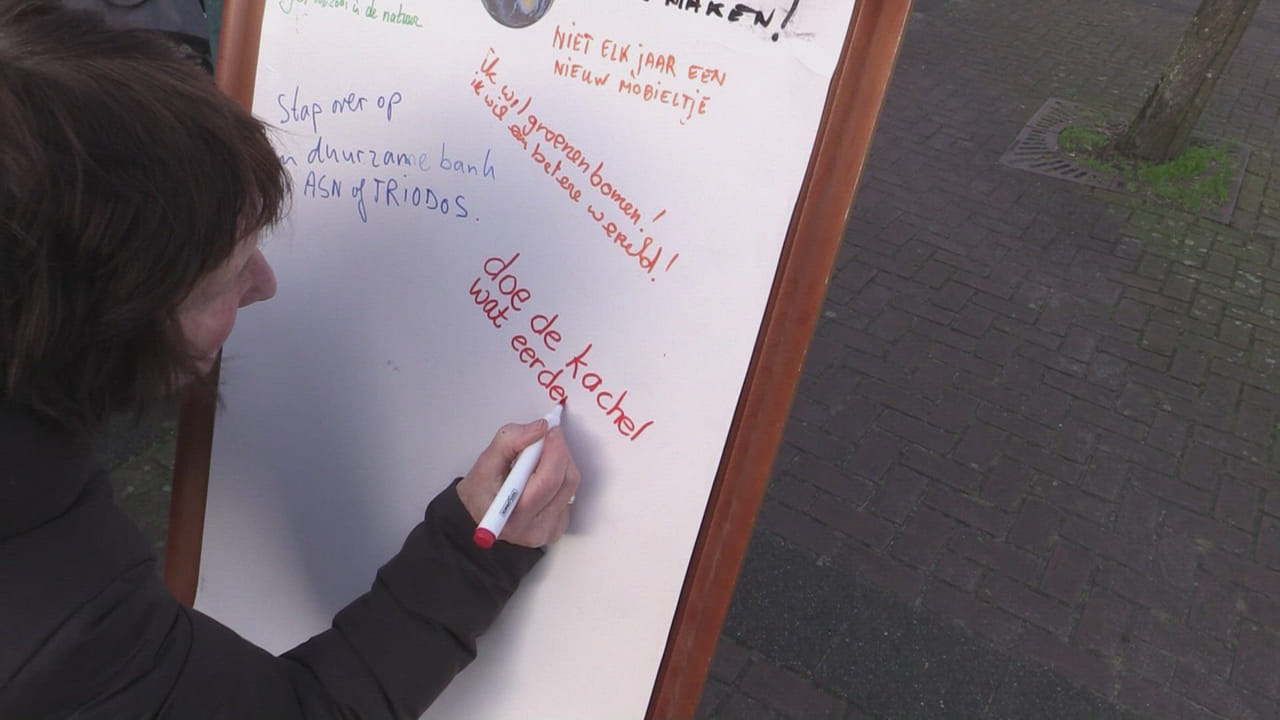 in de natuur
MAKEN!
NIET ELK jAAR EEN
NIEUW MOBIELTJE
ik wil groenen bomen!
ik wil een betere wereld!
Stap over op
duurzame bank
ASN of TRIODOS.
doe de kachel
wat eerde